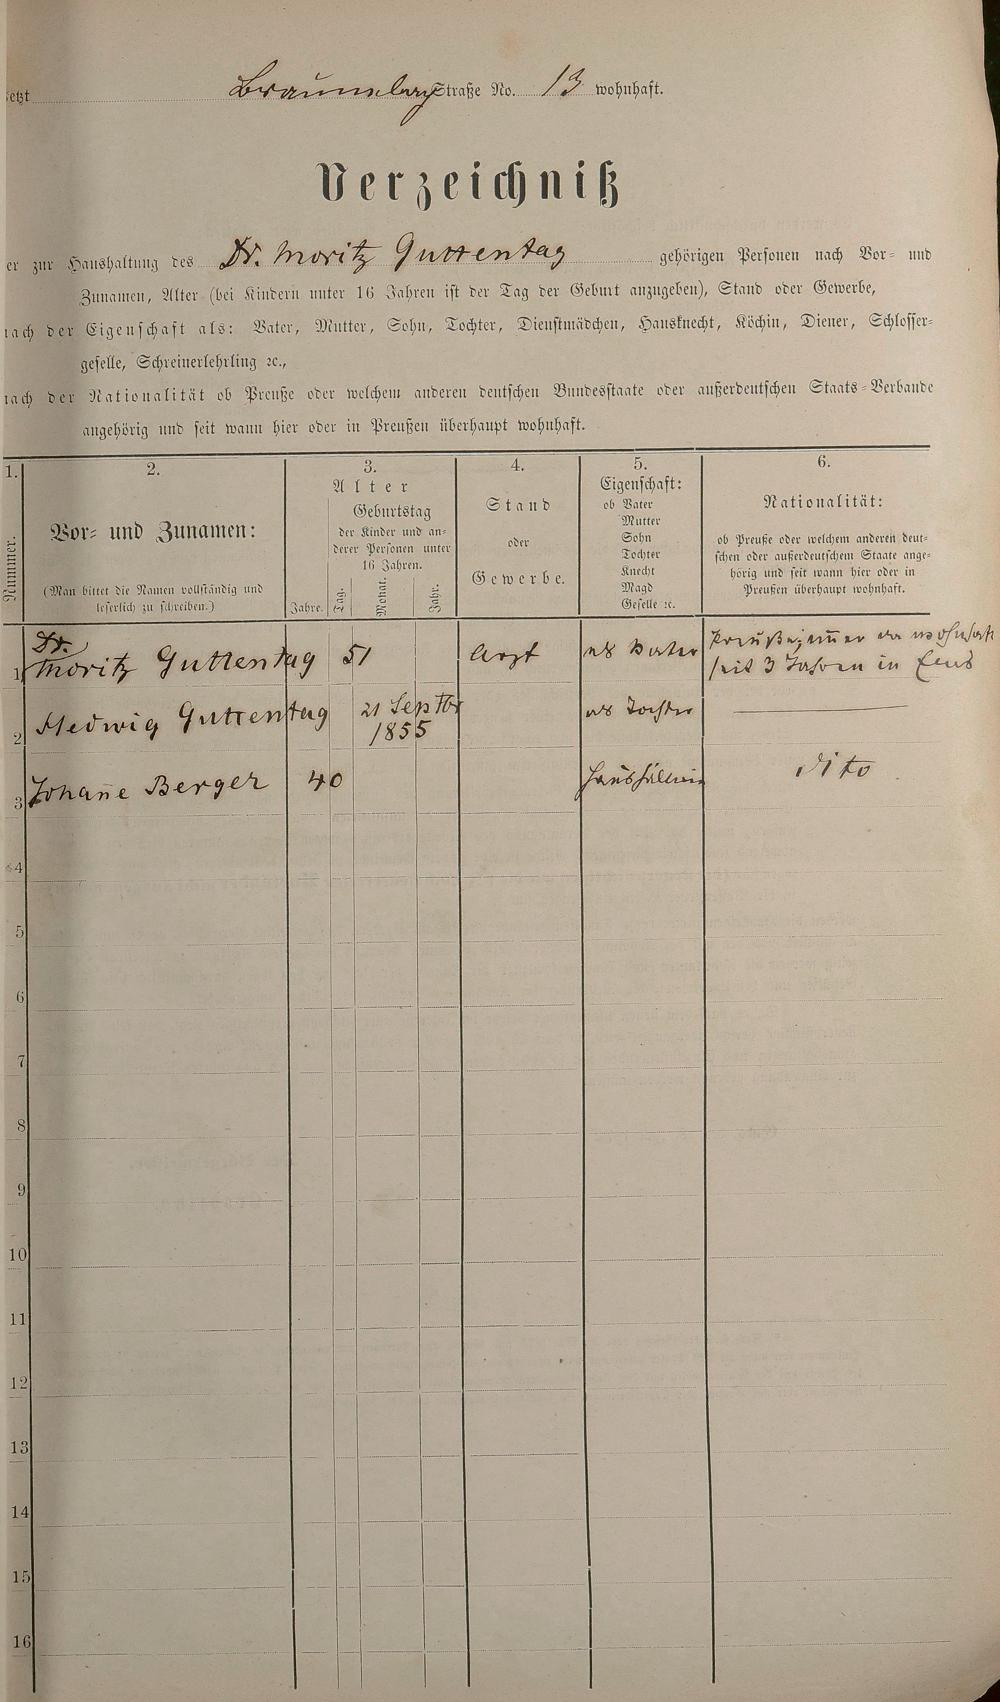 etzt Braunsberg Straße No. 13 wohnhaft.
Verzeichniß
er zur Haushaltung des Dr. Moritz Guttentag gehörigen Personen nach Vor= und
Zunamen, Alter (bei Kindern unter 16 Jahren ist der Tag der Geburt anzugeben), Stand oder Gewerbe,
nach der Eigenschaft als: Vater, Mutter, Sohn, Tochter, Dienstmädchen, Hausknecht, Köchin, Diener, Schlosser=
geselle, Schreinerlehrling ꝛc.,
nach der Nationalität ob Preuße oder welchem anderen deutschen Bundesstaate oder außerdeutschen Staats=Verbande
angehörig und seit wann hier oder in Preußen überhaupt wohnhaft.
1. 2. 3. 4. 5. 6.
Nummer.
Vor= und Zunamen:
(Man bittet die Namen vollständig und
leserlich zu schreiben.)
Alter
Jahre.
Geburtstag
der Kinder und an=
derer Personen unter
16 Jahren.
Tag. Monat. Jahr.
Stand
oder
Gewerbe.
Eigenschaft:
ob Vater
Mutter
Sohn
Tochter
Knecht
Magd
Geselle ꝛc.
Nationalität:
ob Preuße oder welchem anderen deut=
schen oder außerdeutschem Staate ange=
hörig und seit wann hier oder in
Preußen überhaupt wohnhaft.
1 Dr.
Moritz Guttentag 51 Arzt als Vater
seit 3 Jahren in Ems
2 Hedwig Guttentag 21 Septbr
1855 als Tochter
3 Johañe Berger 40 Haushälterin dito
4
5
6
7
8
9
10
11
12
13
14
15
16